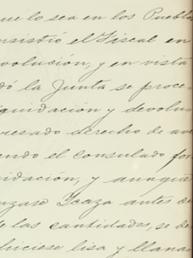 que lo sea en los Pueblo
nsistió el Fiscal en
volución, y en vista
dó la Junta se proce
quidación y devolu
presado derecho de av
endo el consulado for
idación, y aunque
nzuso Icaza antes d
las cantidades, se d
luciese lisa y llana